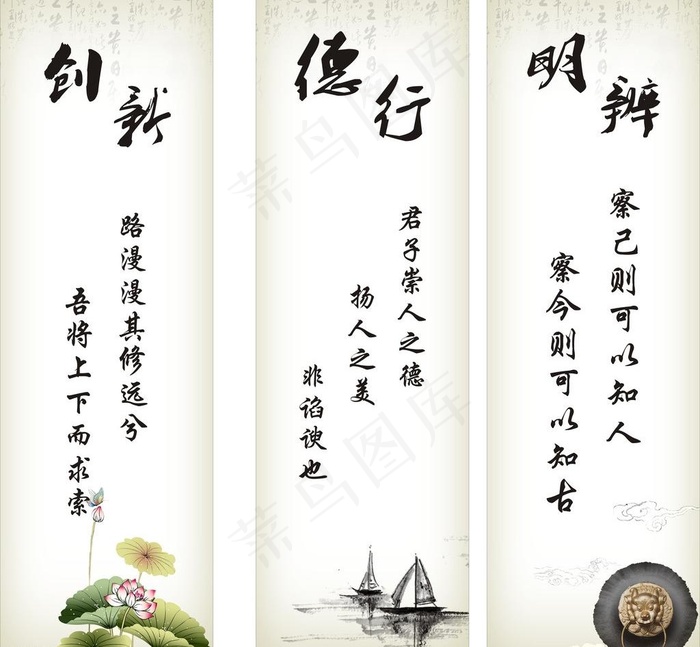 创新
路漫漫其修远兮
吾将上下而求索
德行
君子崇人之德
扬人之美
非谄谀也
明辨
察己则可以知人
察今则可以知古
菜鸟图库
菜鸟图库
菜鸟图库